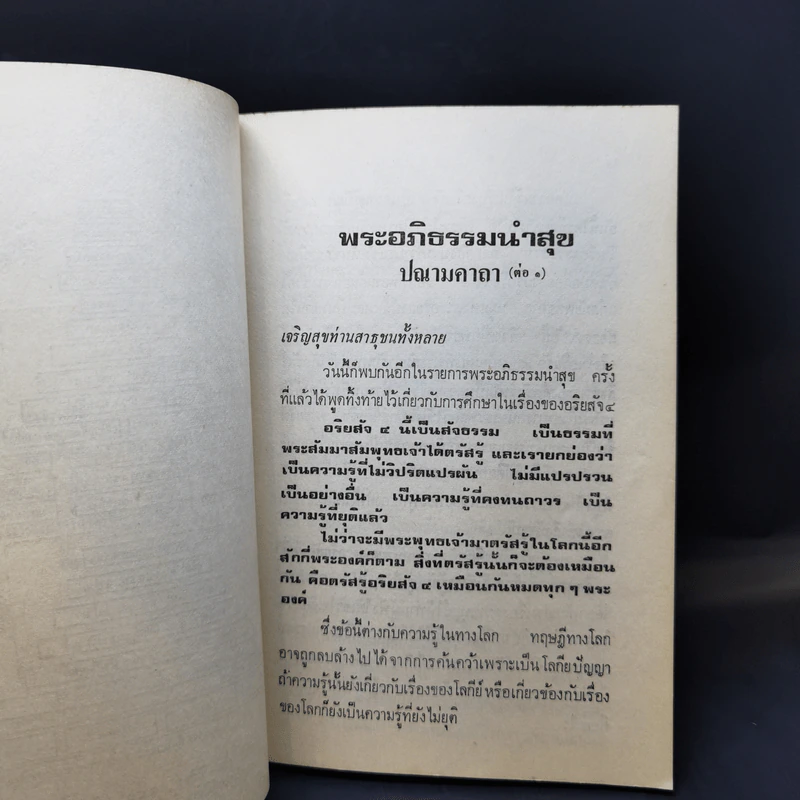 พระอภิธรรมนำสุข
ปณามคาถา (ต่อ ๑)
เจริญสุขท่านสาธุชนทั้งหลาย
วันนี้ก็พบกันอีกในรายการพระอภิธรรมนำสุข ครั้ง
ที่แล้วได้พูดทิ้งท้ายไว้เกี่ยวกับการศึกษาในเรื่องของอริยสัจ๔
อริยสัจ ๔ นี้เป็นสัจธรรม เป็นธรรมที่
พระสัมมาสัมพุทธเจ้าได้ตรัสรู้ และเรายกย่องว่า
เป็นความรู้ที่ไม่วิปริตแปรผัน ไม่มีแปรปรวน
เป็นอย่างอื่น เป็นความรู้ที่คงทนถาวร เป็น
ความรู้ที่ยุติแล้ว
ไม่ว่าจะมีพระพุทธเจ้ามาตรัสรู้ในโลกนี้อีก
สักกี่พระองค์ก็ตาม สิ่งที่ตรัสรู้นั้นก็จะต้องเหมือน
กัน คือตรัสรู้อริยสัจ ๔ เหมือนกันหมดทุก ๆ พระ
องค์
ซึ่งข้อนี้ต่างกับความรู้ในทางโลก ทฤษฎีทางโลก
อาจถูกลบล้างไปได้จากการค้นคว้าเพราะเป็นโลกียปัญญา
ถ้าความรู้นั้นยังเกี่ยวกับเรื่องของโลกีย์ หรือเกี่ยวข้องกับเรื่อง
ของโลกก็ยังเป็นความรู้ที่ยังไม่ยุติ